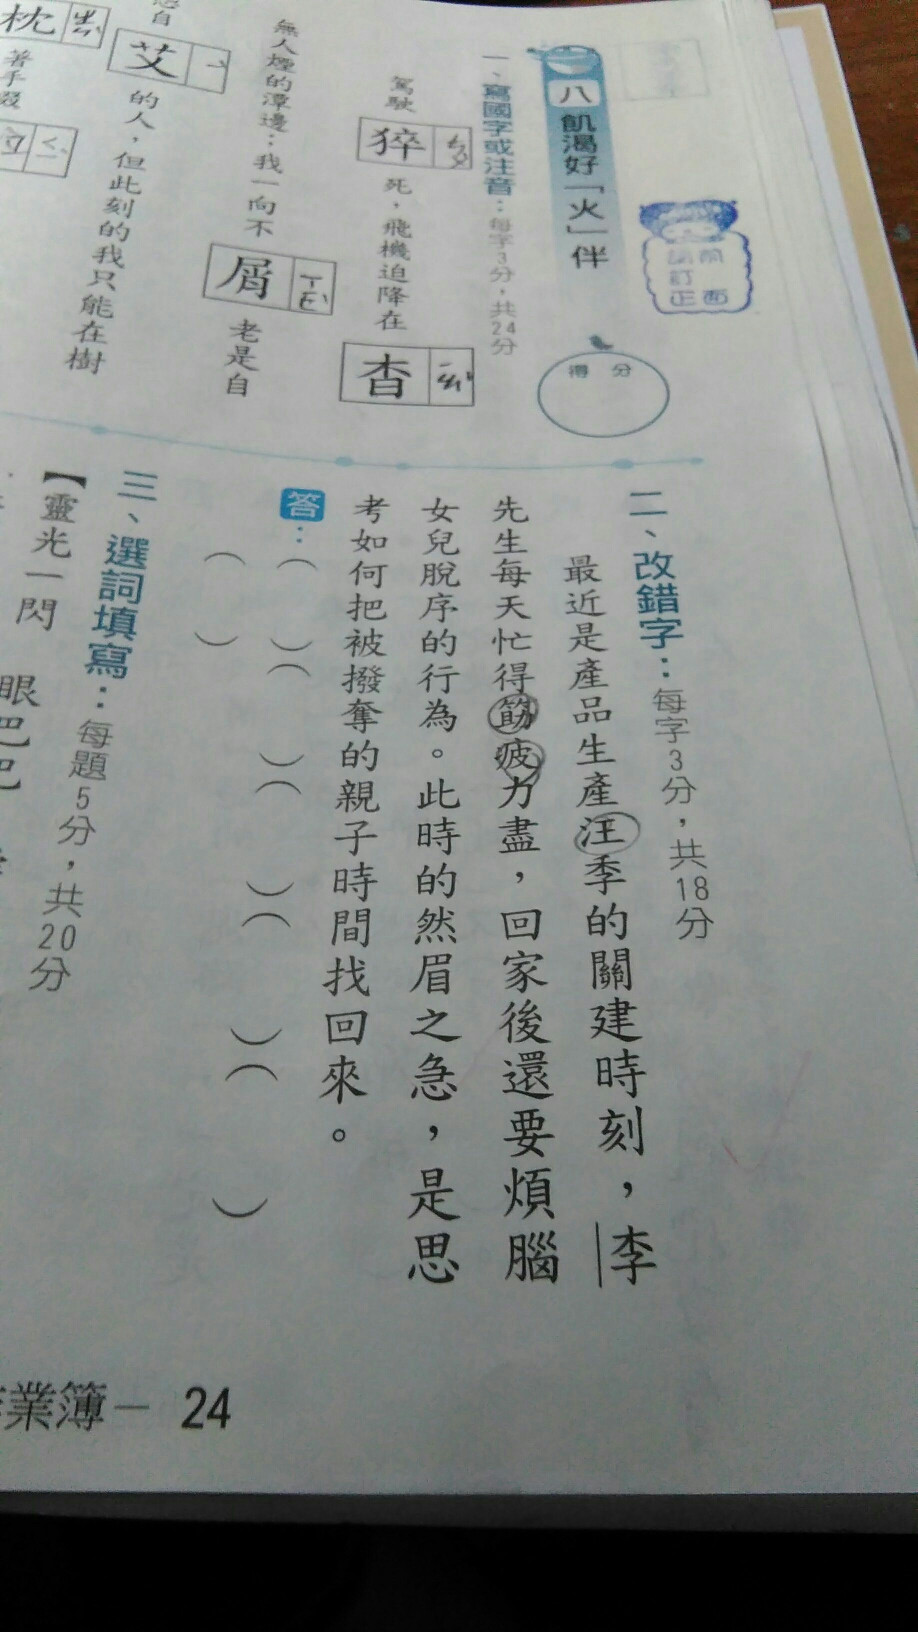 請
訂
正
前
面
八 飢渴好「火」伴
得分
一、寫國字或注音：每字3分，共24分
駕駛猝ㄘㄨˋ死，飛機迫降在杳ㄧㄠˇ
無人煙的潭邊；我一向不屑ㄒㄧㄝˋ老是自
艾ㄧˋ的人，但此刻的我只能在樹
枕
著手
二、改錯字：每字3分，共18分
最近是產品生產汪季的關建時刻，李
先生每天忙得筋疲力盡，回家後還要煩腦
女兒脫序的行為。此時的然眉之急，是思
考如何把被撥奪的親子時間找回來。
答：（ ）（ ）（ ）（ ）（ ）
（ ）
三、選詞填寫：每題5分，共20分
【靈光一閃
眼巴巴
業簿－ 24